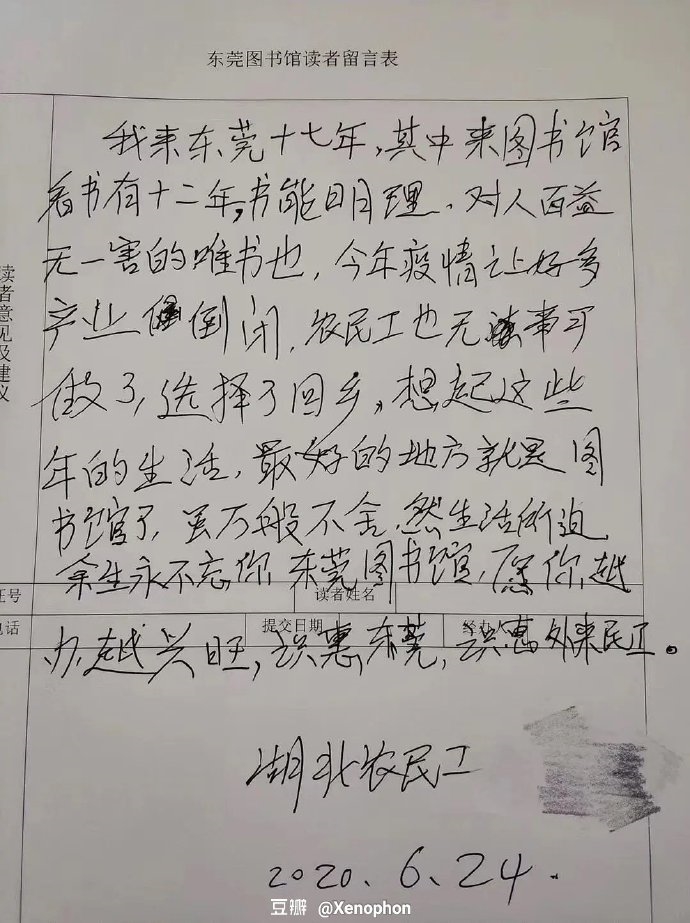 东莞图书馆读者留言表
我来东莞十七年,其中来图书馆
看书有十二年,书能明理、对人百益
无一害的唯书也,今年疫情让好多
产业倒闭,农民工也无事可
做了,选择了回乡,想起这些
年的生活,最好的地方就是图
书馆了,虽万般不舍,然生活所迫
余生永不忘你,东莞图书馆,愿你越
办越兴旺,识惠东莞,识惠外来民工。
读者意见及建议
证号
读者姓名
电话
提交日期
经办人
湖北农民工
2020、6、24、
豆瓣 @Xenophon